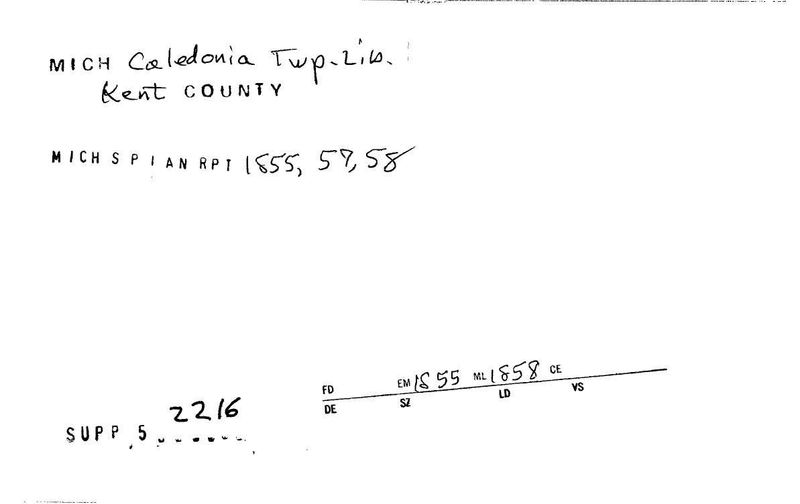 MICH Caledonia Twp. Lib.
Kent COUNTY
MICH S P I AN RPT 1855, 57, 58
FD EM 1855 ML 1858 CE
DE SZ LD VS
2216
SUPP 5